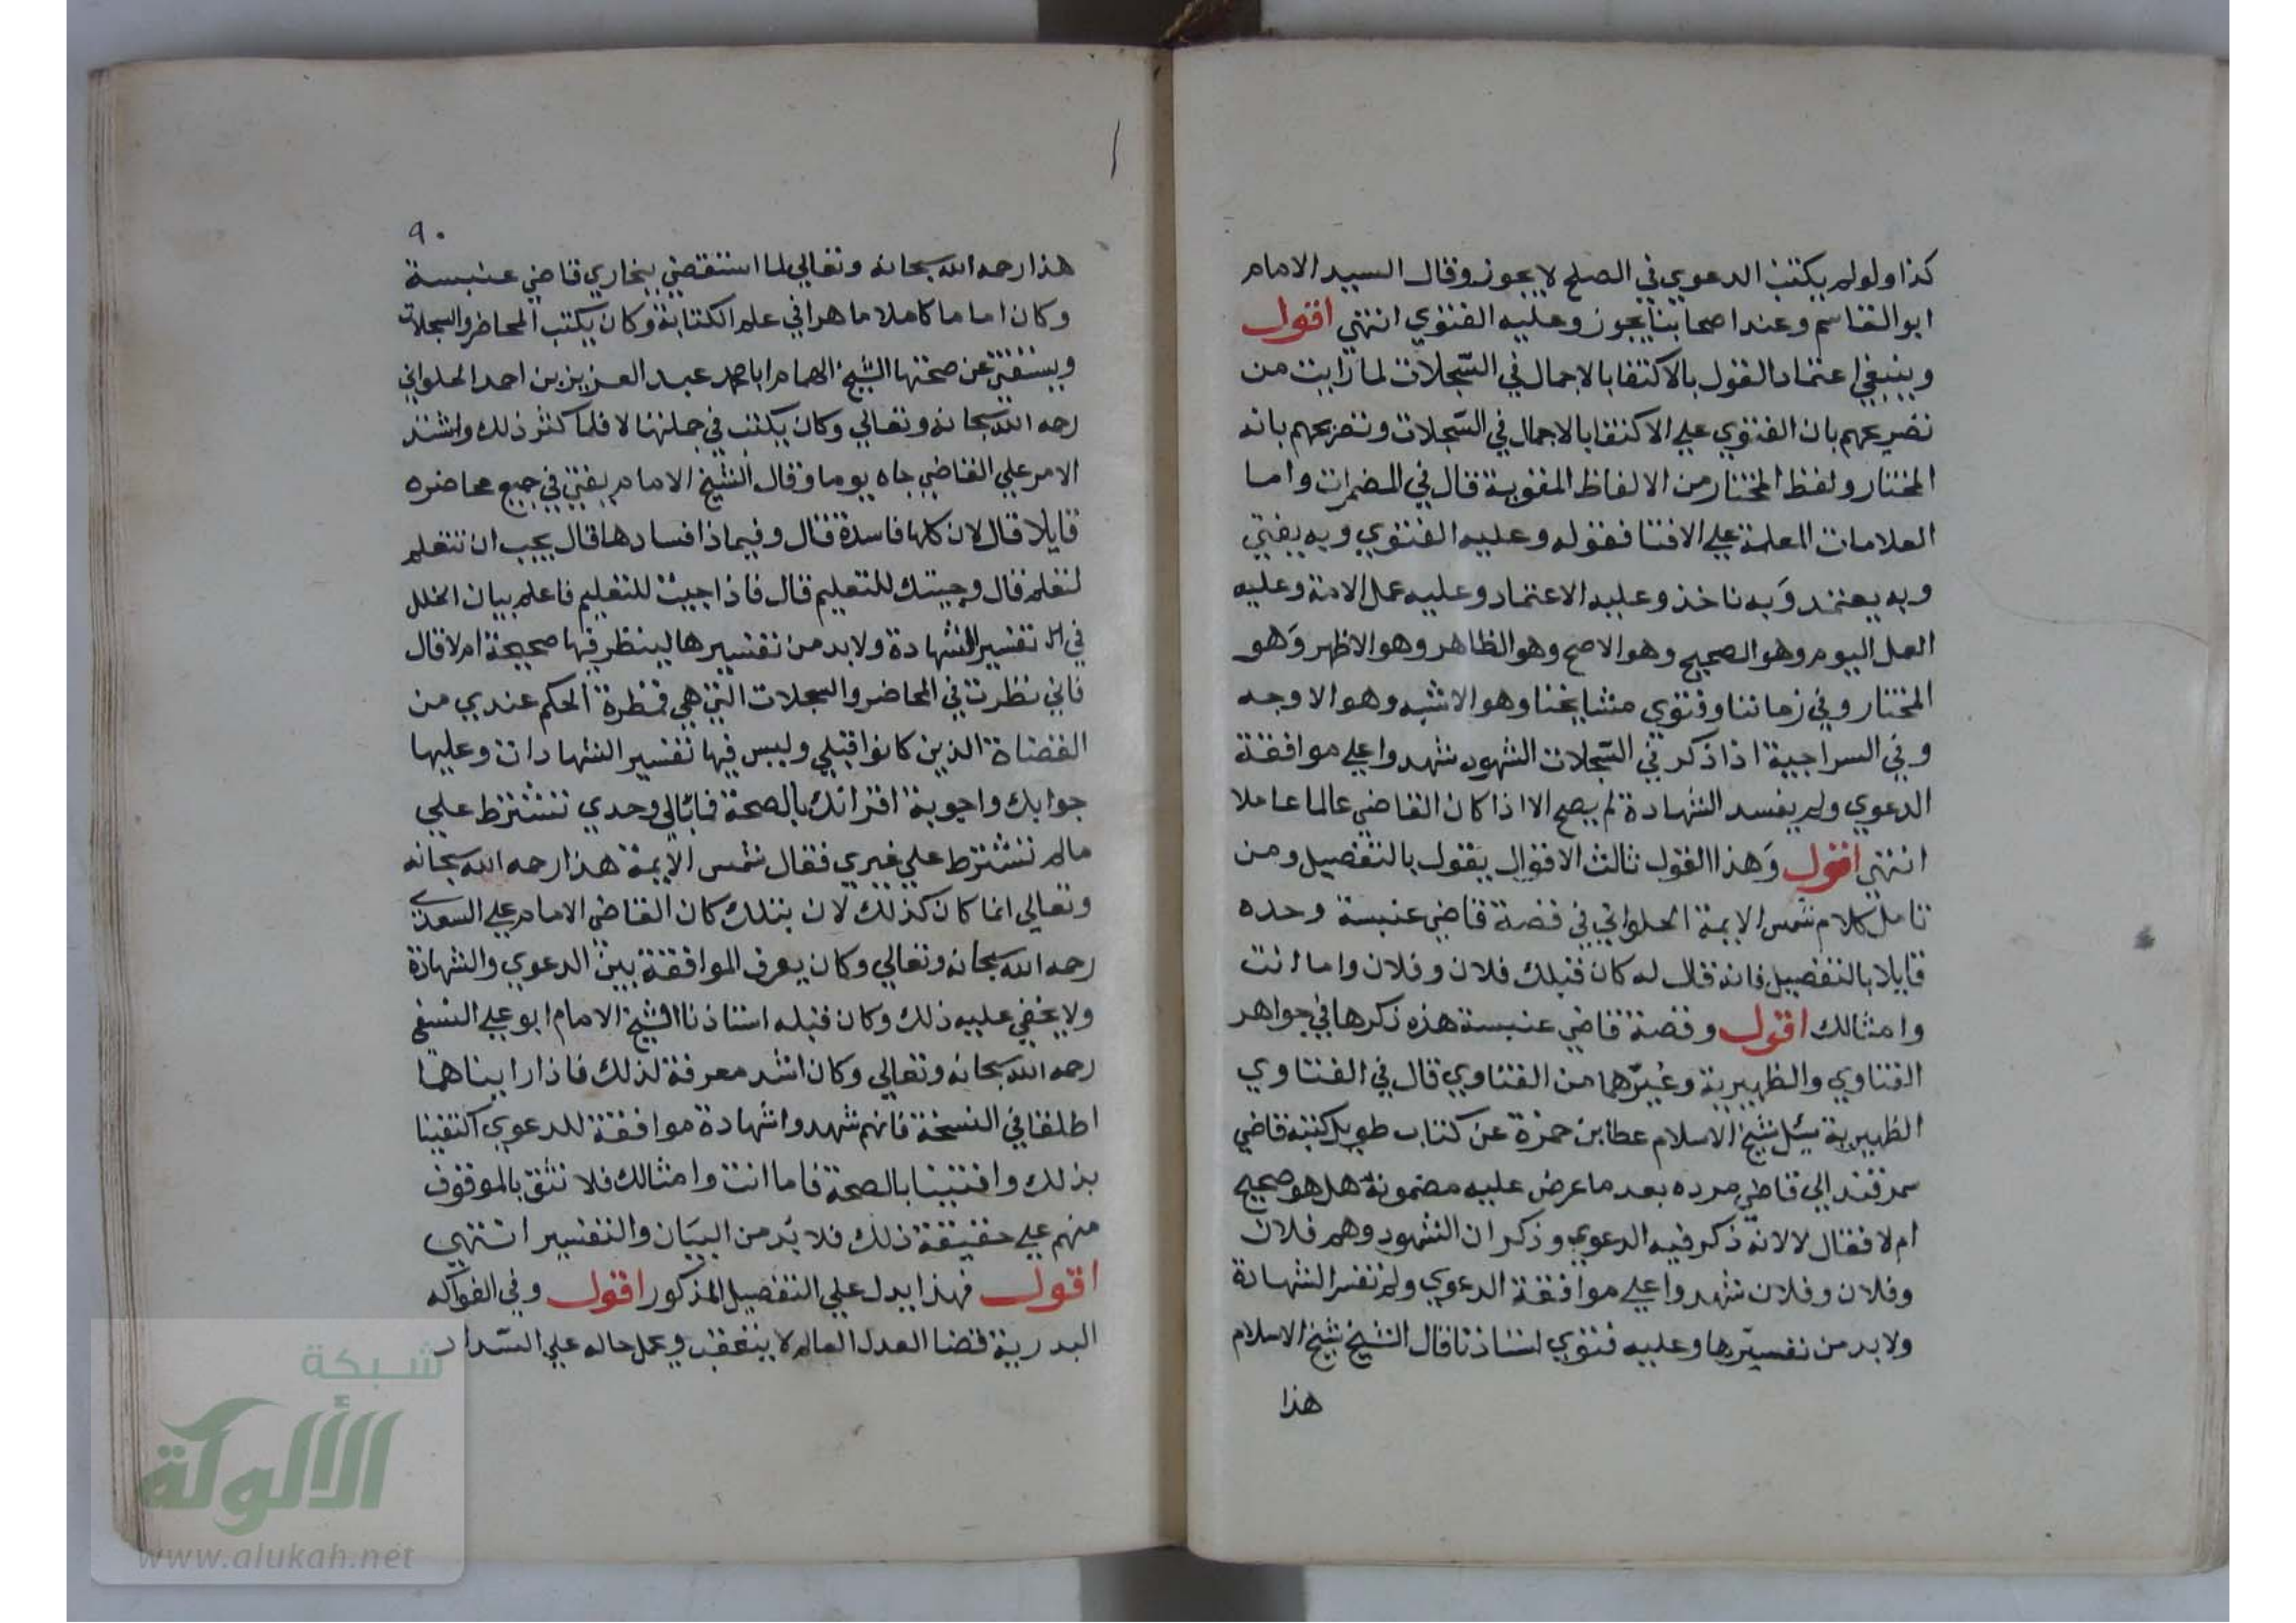 كذا ولو لم يكتب الدعوي في الصلح لا يجوز وقال السيد الامام
ابو القاسم وعند اصحابنا يجوز وعليه الفتوي انتهي اقول
وينبغي اعتماد القول بالاكتفا بالاجمال في السّجلات لما رايت من
تصريحهم بان الفتوي علي الاكتفا بالاجمال في السّجلات وتصريحهم بانه
المختار ولفظ المختار من الالفاظ المفتوية قال في المضمرات واما
العلامات المعلمة علي الافتا فقوله وعليه الفتوي وبه يفتي
وبه يعتمد وَبه ناخذ وعليه الاعتماد وعليه عمل الامة وعليه
العمل اليوم وهو الصحيح وهو الاصح وهو الظاهر وهو الاظهر وَهو
المختار وفي زماننا وفتوي مشايخنا وهو الاشبه وهو الاوجه
وفي السراجية اذا ذكر في السّجلات الشهود شهدوا علي موافقة
الدعوي ولم يفسد الشهادة لم يصح الا اذا كان القاضي عالما عاملا
انتهي اقول وَهذا القول ثالث الاقوال يقول بالتفصيل ومن
تامل كلام شمس الايمة الحلواني في قصة قاضي عنبسة وحده
قايلا بالتفصيل فانه قال له كان قبلك فلان وفلان واما انت
وامثالك اقول وقصة قاضي عنبسة هذه ذكرها في جواهر
الفتاوي والظهيرية وغيرهما من الفتاوي قال في الفتاوي
الظهيرية سئل شيخ الاسلام عطا بن حمزة عن كتاب طويل كتبه قاضي
سمرقند الي قاضي مرده بعد ما عرض عليه مضمونه هل هو صحيح
ام لا فقال لا لانه ذكر فيه الدعوي وذكر ان الشهود وهم فلان
وفلان وفلان شهدوا علي موافقة الدعوي ولم تفسر الشهادة
ولا بد من تفسيرها وعليه فتوي استاذنا قال الشيخ شيخ الاسلام
هذا
٩٠
هذا رحمه الله سبحانه وتعالي لما استقضي ببخاري قاضي عنبسة
وكان اماما كاملا ماهرا في علم الكتابة وكان يكتب المحاضر والسجلات
ويستفتي عن صحتها الشيخ الهمام ابا محمد عبد العزيز بن احمد الحلواني
رحمه الله سبحانه وتعالي وكان يكتب في جملتها لا فلما كثر ذلك واشتد
الامر علي القاضي جاه يوما وقال الشيخ الامام يفتي في جميع محاضره
قايلا قال لان كلها فاسدة فقال وفيماذا فسادها قال يجب ان تتعلم
لتعلم قال وجيتك للتعليم قال فاذا جيت للتعليم فاعلم بيان الخلل
في تفسير الشهادة ولا بد من تفسيرها لينظر فيها صحيحة ام لا قال
فاني نظرت في المحاضر والسجلات التي هي قمطرة الحكم عندي من
القضاة الذين كانوا قبلي وليس فيها تفسير الشهادات وعليها
جوابك واجوبة اقرانك بالصحة فمابالي وحدي تشترط علي
مالم تشترط علي غيري فقال شمس الايمة هذا رحمه الله سبحانه
وتعالي انما كان كذلك لان بتلك كان القاضي الامام علي السعدي
رحمه الله سبحانه وتعالي وكان يعرف الموافقة بين الدعوي والشهادة
ولا يخفي عليه ذلك وكان قبله استاذنا الشيخ الامام ابو علي النسفي
رحمه الله سبحانه وتعالي وكان اشد معرفة لذلك فاذا رايناهما
اطلقا في النسخة فانهم شهدوا شهادة موافقة للدعوي اكتفينا
بذلك وافتينا بالصحة فاما انت وامثالك فلا نثق بالموقوف
منهم علي حقيقة ذلك فلا بُد من البيَان والتفسير انتهي
اقول فهذا يدل علي التفصيل المذكور اقول وفي الفواكه
البدرية قضا العدل العالم لا يتعقب ويحمل حاله علي السّداد
شبكة
الألوكة
www.alukah.net